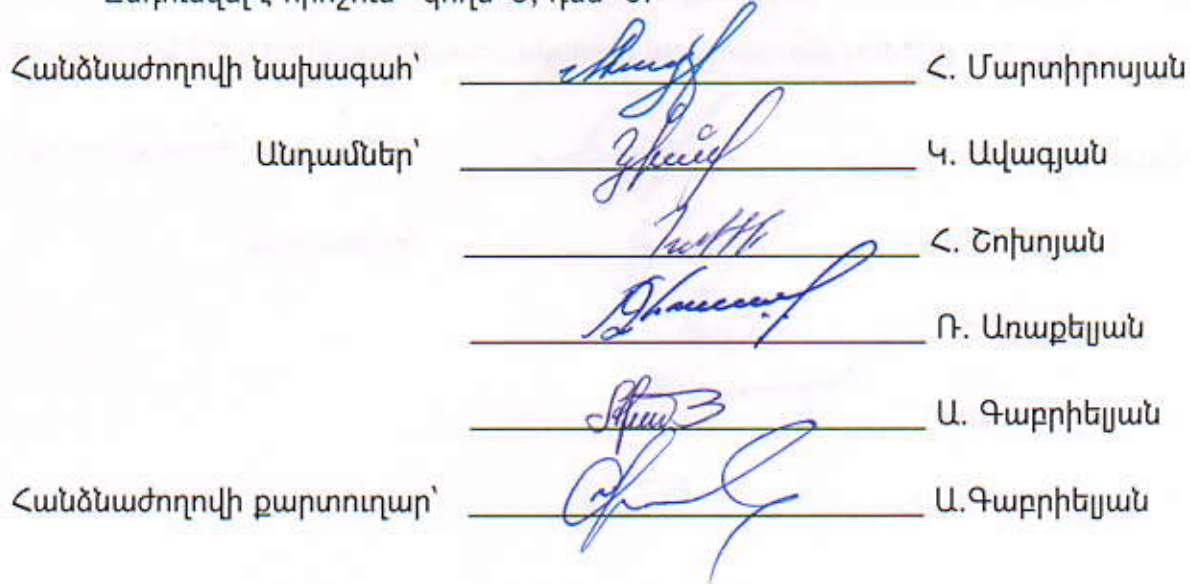 Հանձնաժողովի նախագահ՝ Հ. Մարտիրոսյան
Անդամներ՝ Կ. Ավագյան
Հ. Շոխոյան
Ռ. Առաքելյան
Ա. Գաբրիելյան
Հանձնաժողովի քարտուղար՝ Ա.Գաբրիելյան